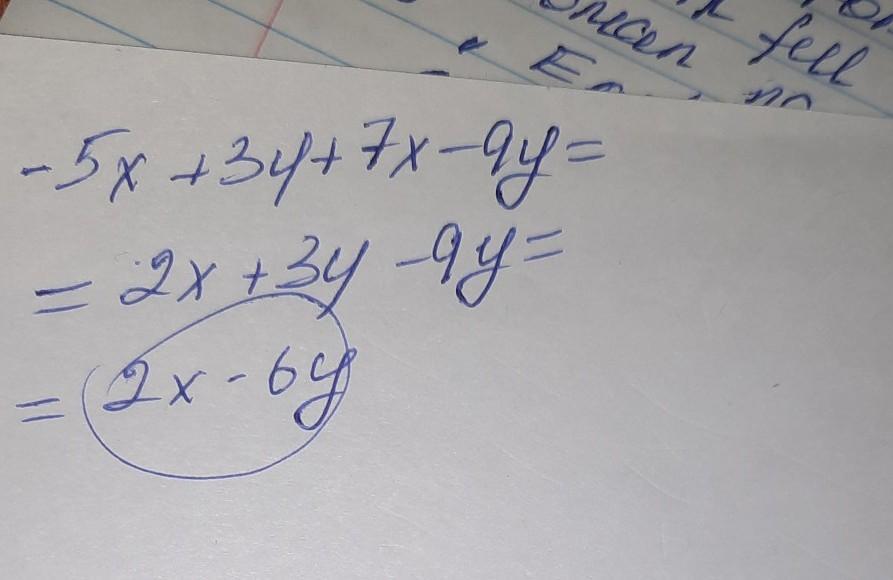 fell
-5x +3y+7x-9y=
= 2x +3y -9y=
= 2x - 6y